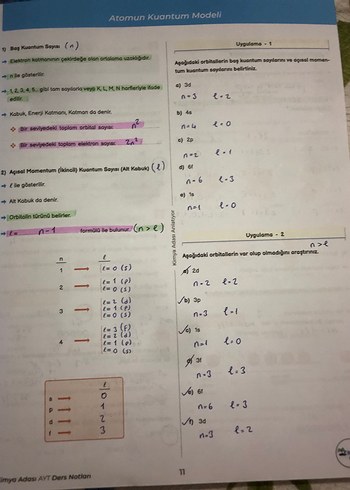 Atomun Kuantum Modeli
1) Baş Kuantum Sayısı (n)
→ Elektron katmanının çekirdeğe olan ortalama uzaklığıdır.
→ n ile gösterilir.
→ 1, 2, 3, 4, 5.. gibi tam sayılarla veya K, L, M, N harfleriyle ifade
edilir.
→ Kabuk, Enerji Katmanı, Katman da denir.
❖ Bir seviyedeki toplam orbital sayısı: n²
❖ Bir seviyedeki toplam elektron sayısı: 2n²
2) Açısal Momentum (İkincil) Kuantum Sayısı (Alt Kabuk) (ℓ)
→ ℓ ile gösterilir.
→ Alt Kabuk da denir.
→ Orbitalin türünü belirler.
→ ℓ = n - 1 formülü ile bulunur. (n > ℓ)
n ℓ
1 → ℓ = 0 (s)
2 → ℓ = 1 (p)
ℓ = 0 (s)
3 → ℓ = 2 (d)
ℓ = 1 (p)
ℓ = 0 (s)
4 → ℓ = 3 (f)
ℓ = 2 (d)
ℓ = 1 (p)
ℓ = 0 (s)
ℓ
s → 0
p → 1
d → 2
f → 3
Kimya Adası Anlatıyor
Uygulama - 1
Aşağıdaki orbitallerin baş kuantum sayılarını ve açısal momen-
tum kuantum sayılarını belirtiniz.
a) 3d
n = 3 ℓ = 2
b) 4s
n = 4 ℓ = 0
c) 2p
n = 2 ℓ = 1
d) 6f
n - 6 ℓ = 3
e) 1s
n = 1 ℓ = 0
Uygulama - 2
n > ℓ
Aşağıdaki orbitallerin var olup olmadığını araştırınız.
a) 2d
n = 2 ℓ = 2
✓b) 3p
n = 3 ℓ = 1
✓c) 1s
n = 1 ℓ = 0
d) 3f
n = 3 ℓ = 3
✓e) 6f
n = 6 ℓ = 3
✓f) 3d
n = 3 ℓ = 2
11
imya Adası AYT Ders Notları